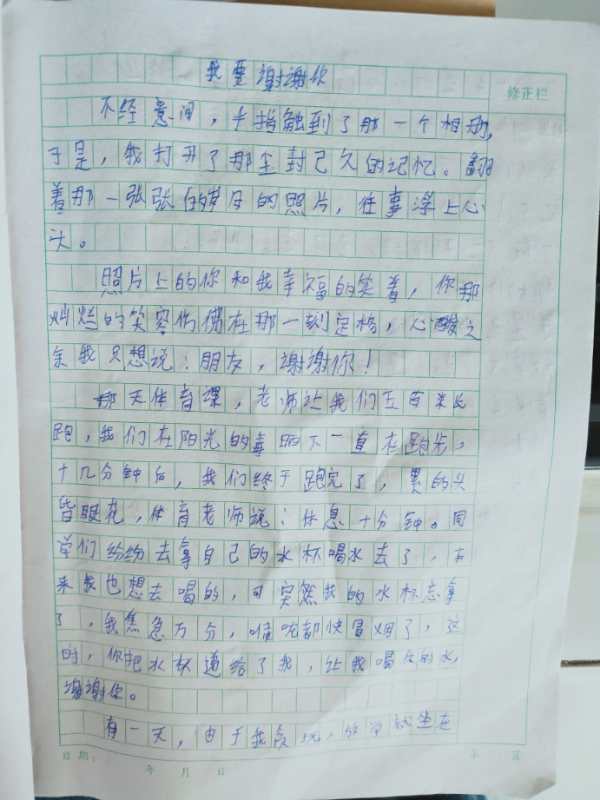 我要谢谢你
修正栏
不经意间，手指触到了那一个相册，
于是，我打开了那尘封已久的记忆。翻
着那一张张的岁月的照片，往事浮上心
头。
照片上的你和我幸福的笑着，你那
灿烂的笑容仿佛在那一刻定格，心酸之
余我只想说：朋友，谢谢你！
那天体育课，老师让我们五百米长
跑，我们在阳光的下一直在跑步，
十几分钟后，我们终于跑完了，累的头
皆眼花，体育老师说：休息十分钟。同
学们纷纷去拿自己的水杯喝水去了，本
来我也想去喝的，可突然我的水杯忘拿
了，我焦急万分，喉咙都快冒烟了，这
时，你把水杯递给了我，让我喝你的水，
谢谢你。
有一天，由于我贪玩，放学就坐在
日期： 年 月 日